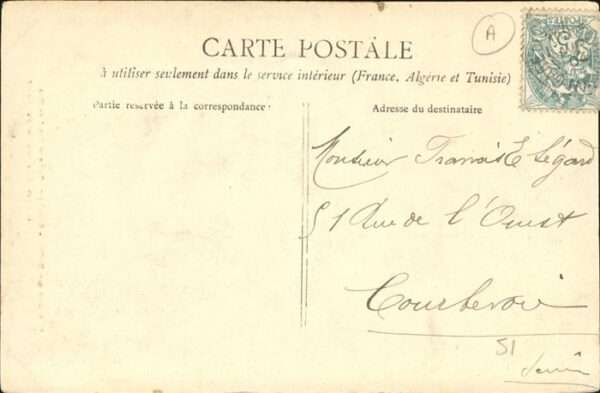 A
CARTE POSTALE
à utiliser seulement dans le service intérieur (France, Algérie et Tunisie)
Partie réservée à la correspondance
Adresse du destinataire
Monsieur Légard
51 Rue de l'Ouest
Courbevoie
51
Seine